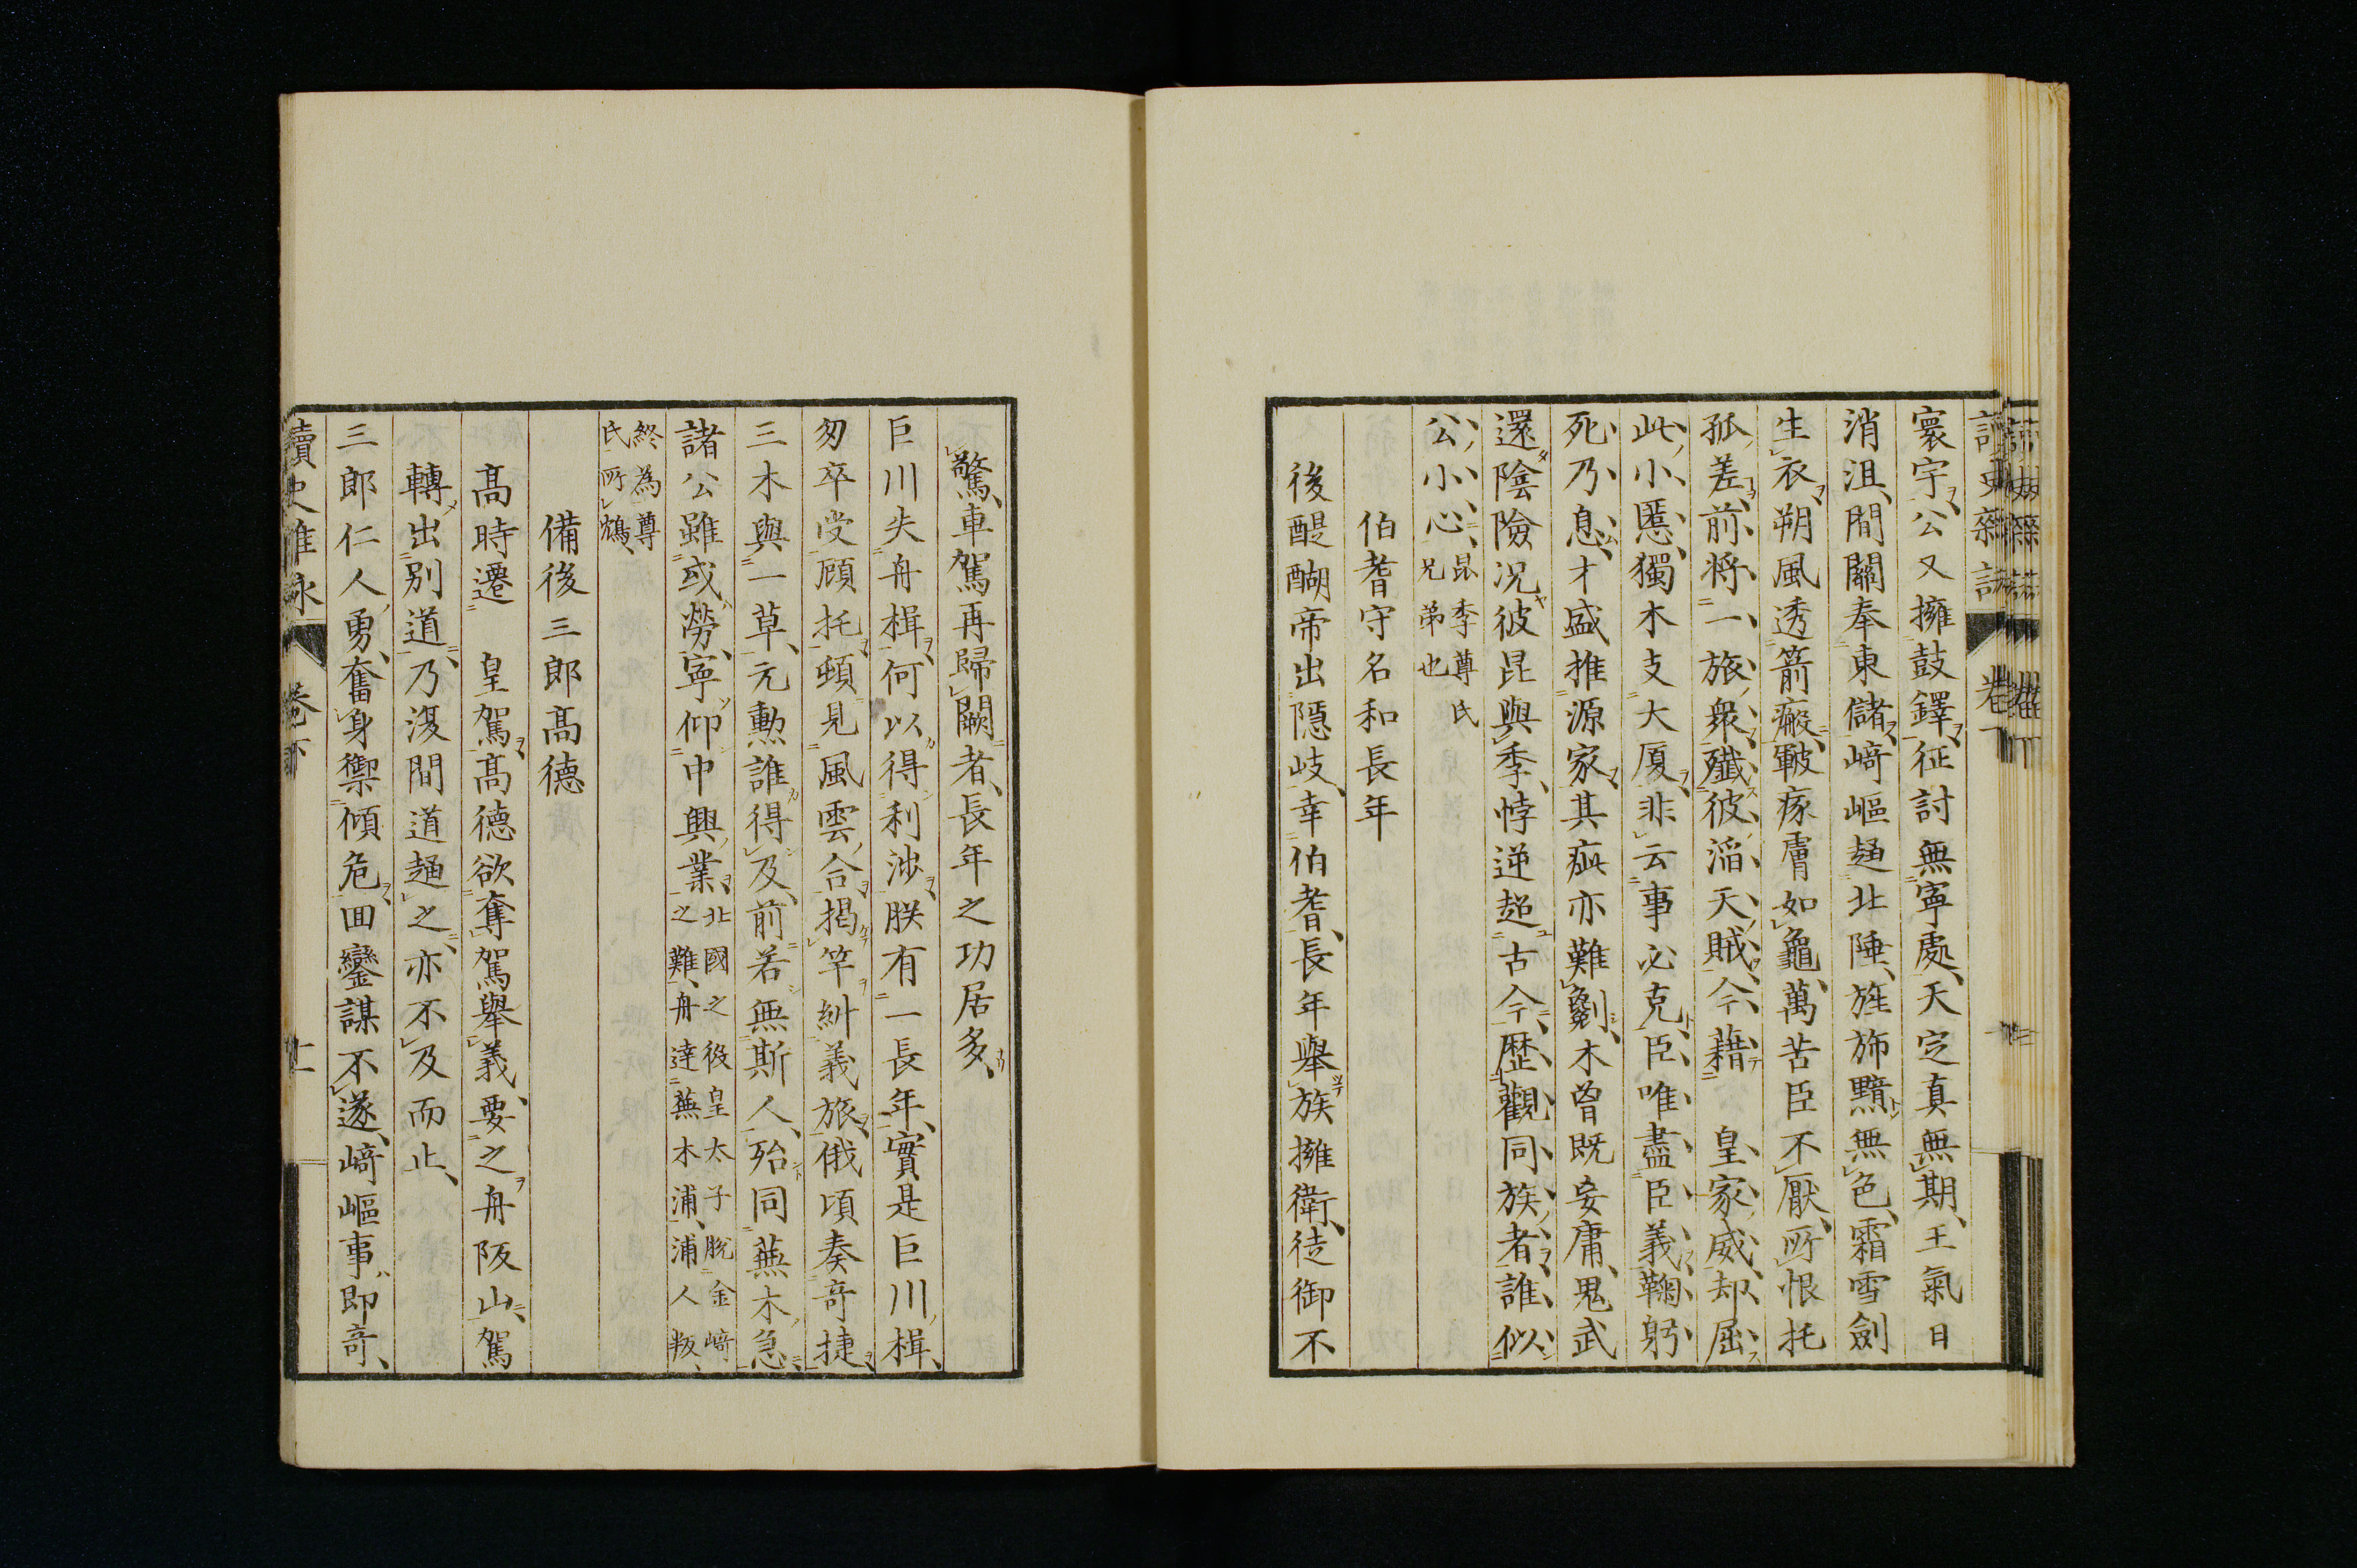 寰宇公又擁鼓鐸征討無寧處天定真無期王氣日
消沮間關奉東儲﨑嶇趣北陲旌旆黯無色霜雪劍
生衣朔風透箭瘢皸瘃膚如龜萬苦臣不厭所恨托
孤差前將一旅衆殲彼滔天賊今藉　皇家威却屈
此小慝獨木支大厦非云事必克臣唯盡臣義鞠躬
死乃息才盛推源家其疵亦難劉木曾既妄庸鬼武
還陰險况彼昆與季悖逆超古今歴觀同族者誰似
公小心昆季尊氏
兄弟也
伯耆守名和長年
後醍醐帝出隱岐幸伯耆長年舉族擁衛徒御不
驚車駕再歸闕者長年之功居多
巨川失舟楫何以得利涉朕有一長年實是巨川楫
匆卒受顧托頓見風雲合揭竿糾義旅俄頃奏奇捷
三木與一草元勲誰得及前若無斯人殆同蕪木急
諸公雖或勞寧仰中興業北國之役皇太子脫金﨑
之難舟達蕪木浦浦人叛
終為尊
氏所鴆
備後三郎高德
高時遷　皇駕高德欲奪駕舉義要之舟阪山駕
轉出別道乃復間道趣之亦不及而止
三郎仁人勇奮身禦傾危回鑾謀不遂﨑嶇事即奇
讀史雜咏　卷下